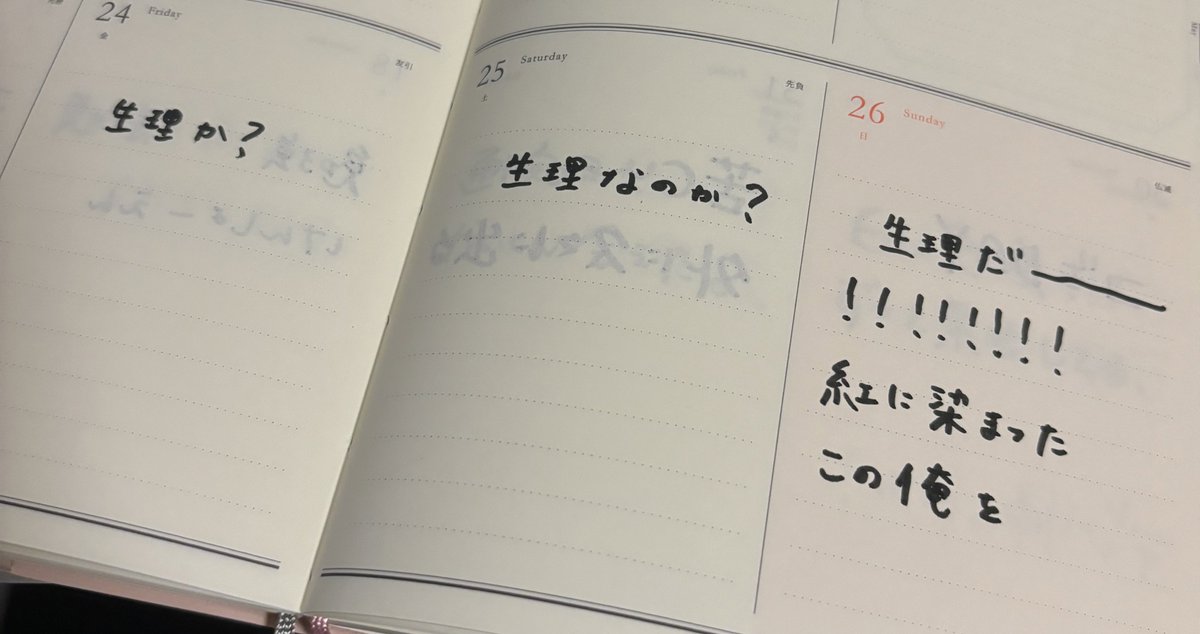 24 Friday
金
友引
生理か?
25 Saturday
土
先負
生理なのか?
26 Sunday
日
仏滅
生理だー
!!!!!!!!
紅に染まった
この俺を